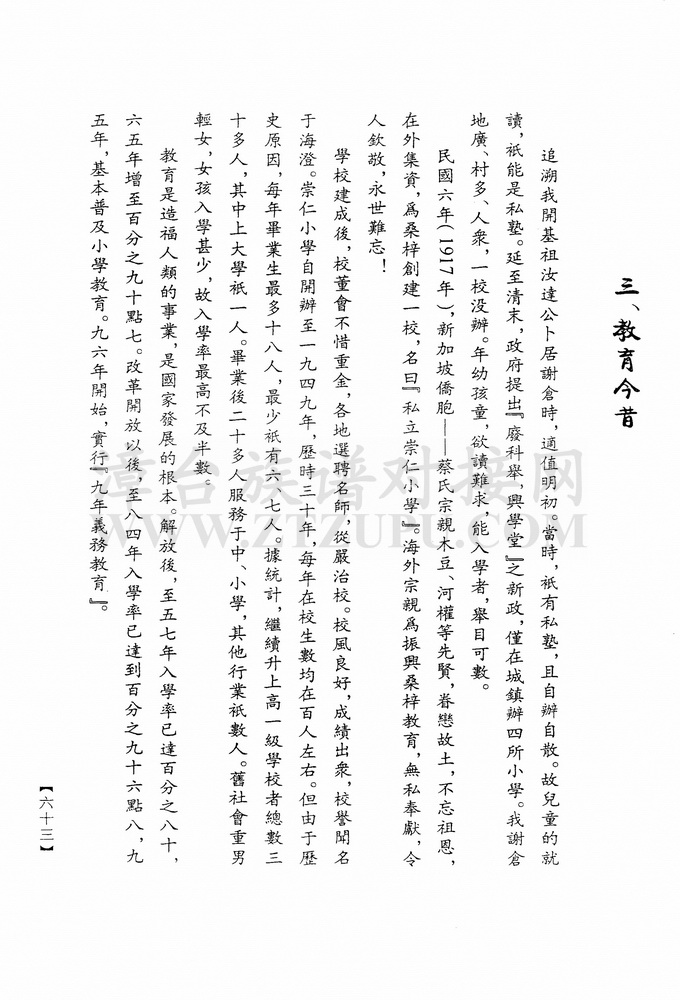 三、教育今昔
追溯我開基祖汝達公卜居謝倉時，適值明初。當時，祇有私塾，且自辦自散。故兒童的就
讀，祇能是私塾。延至清末，政府提出『廢科舉，興學堂』之新政，僅在城鎮辦四所小學。我謝倉
地廣、村多、人衆，一校没辦。年幼孩童，欲讀難求，能入學者，舉目可數。
民國六年（1917年），新加坡僑胞——蔡氏宗親木豆、河權等先賢，眷戀故土，不忘祖恩，
在外集資，爲桑梓創建一校，名曰『私立崇仁小學』。海外宗親爲振興桑梓教育，無私奉獻，令
人欽敬，永世難忘！
學校建成後，校董會不惜重金，各地選聘名師，從嚴治校。校風良好，成績出衆，校譽聞名
于海澄。崇仁小學自開辦至一九四九年，歷時三十年，每年在校生數均在百人左右。但由于歷
史原因，每年畢業生最多十八人，最少祇有六、七人。據統計，繼續升上高一級學校者總數三
十多人，其中上大學祇一人。畢業後二十多人服務于中、小學，其他行業祇數人。舊社會重男
輕女，女孩入學甚少，故入學率最高不及半數。
教育是造福人類的事業，是國家發展的根本。解放後，至五七年入學率已達百分之八十，
六五年增至百分之九十點七。改革開放以後，至八四年入學率已達到百分之九十六點八，九
五年，基本普及小學教育。九六年開始，實行『九年義務教育』。
【六十三】
漳台族谱对接网
WWW.ZTZUPU.COM